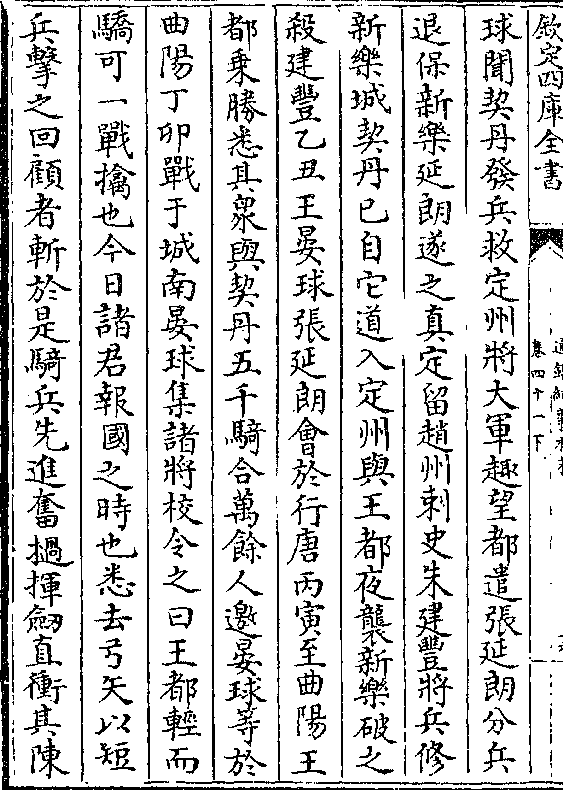 欽定四庫全書
卷四十一下
球聞契丹發兵救定州將大軍趣望都遣張延朗分兵
退保新樂延朗遂之真定留趙州刺史朱建豐將兵修
新樂城契丹已自它道入定州與王都夜襲新樂破之
殺建豐乙丑王晏球張延朗會於行唐丙寅至曲陽王
都乗勝悉其衆與契丹五千騎合萬餘人邀晏球等於
曲陽丁卯戰于城南晏球集諸將校令之曰王都輕而
驕可一戰擒也今日諸君報國之時也悉去弓矢以短
兵擊之回顧者斬於是騎兵先進奮撾揮劔直衝其陳